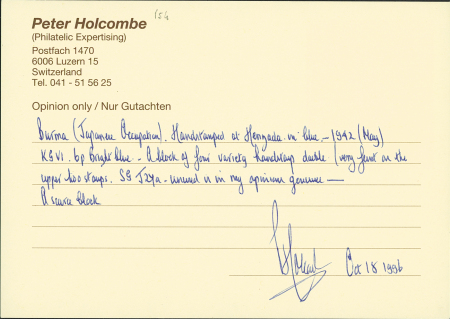 154
Peter Holcombe
(Philatelic Expertising)
Postfach 1470
6006 Luzern 15
Switzerland
Tel. 041 - 51 56 25
Opinion only / Nur Gutachten
Burma (Japanese Occupation). Handstamped at Henzada in blue - 1942 (May)
KGVI. 6p Bright blue - A block of four variety handstamp double (very faint on the
upper two stamps. SG J24a - unused is in my opinion genuine -
A scarce block
Oct 18 1996